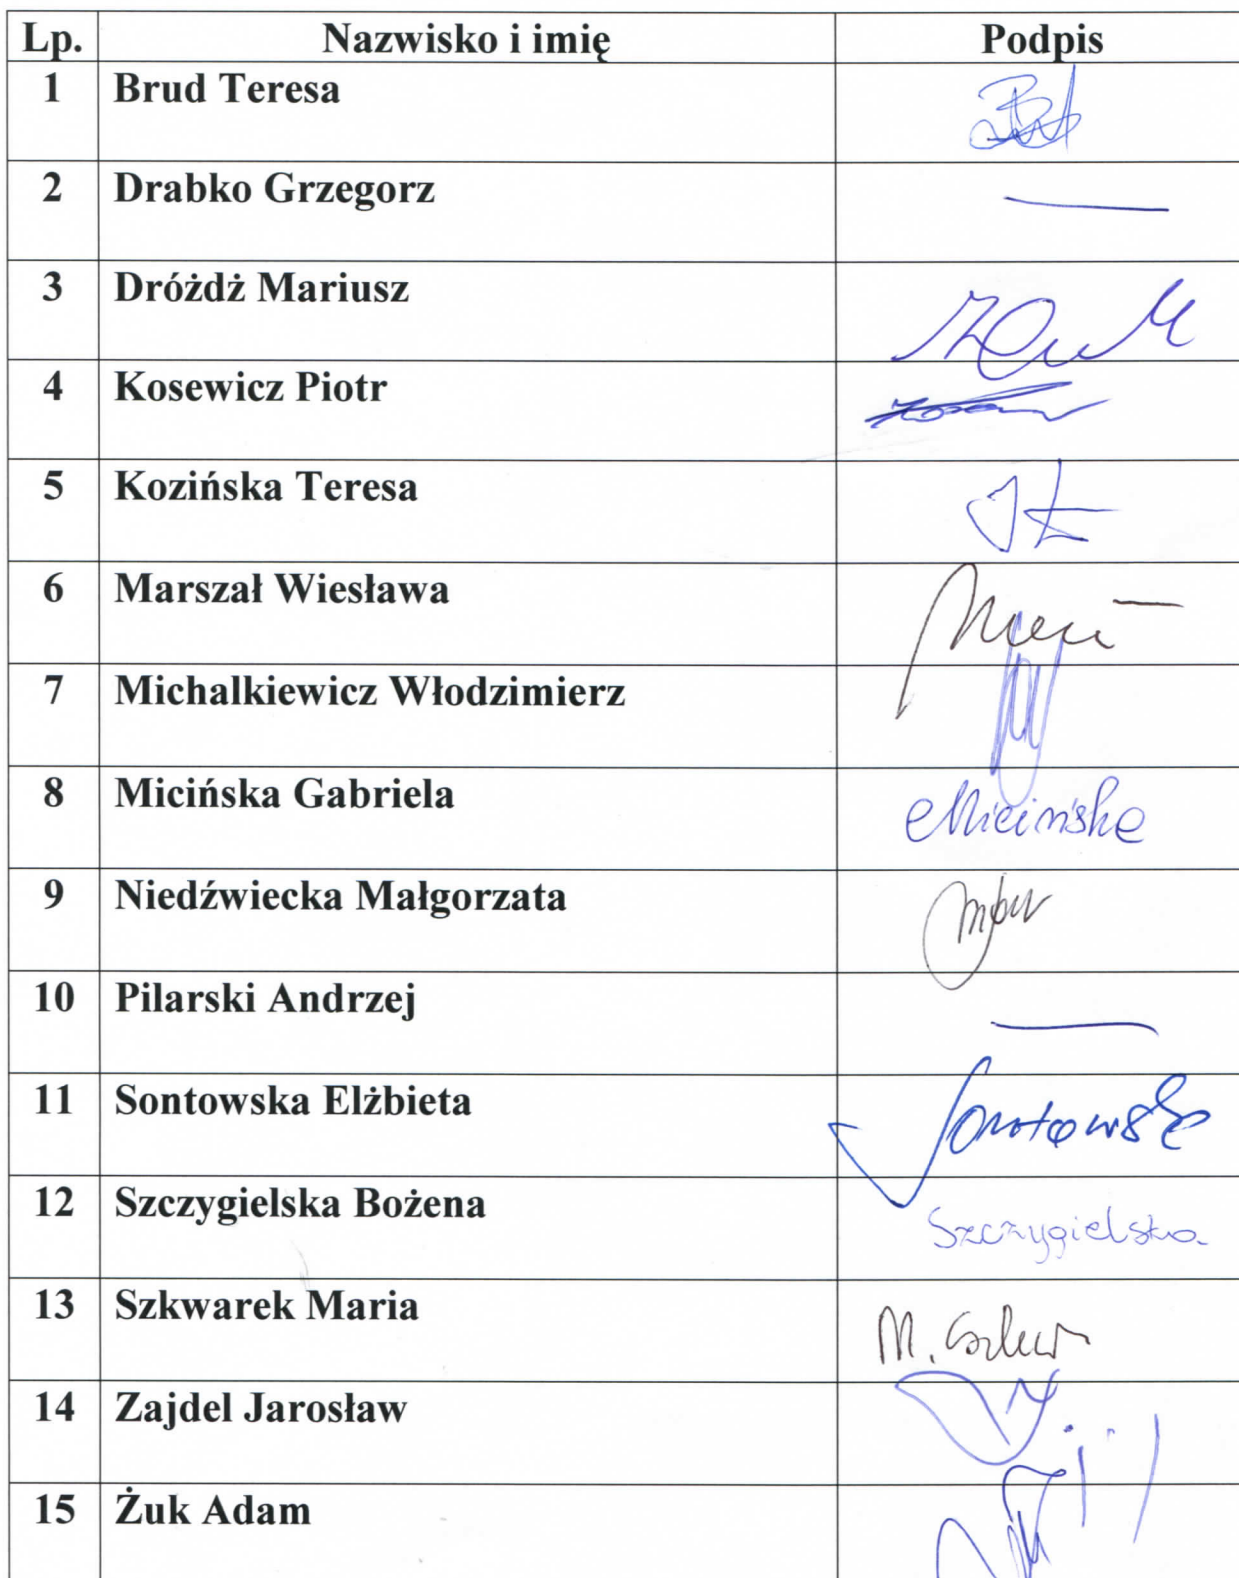 Lp. Nazwisko i imię Podpis
1 Brud Teresa
2 Drabko Grzegorz —
3 Dróżdż Mariusz
4 Kosewicz Piotr
5 Kozińska Teresa
6 Marszał Wiesława
7 Michalkiewicz Włodzimierz
8 Micińska Gabriela Micińska
9 Niedźwiecka Małgorzata
10 Pilarski Andrzej —
11 Sontowska Elżbieta Sontowska
12 Szczygielska Bożena Szczygielska
13 Szkwarek Maria M.
14 Zajdel Jarosław
15 Żuk Adam